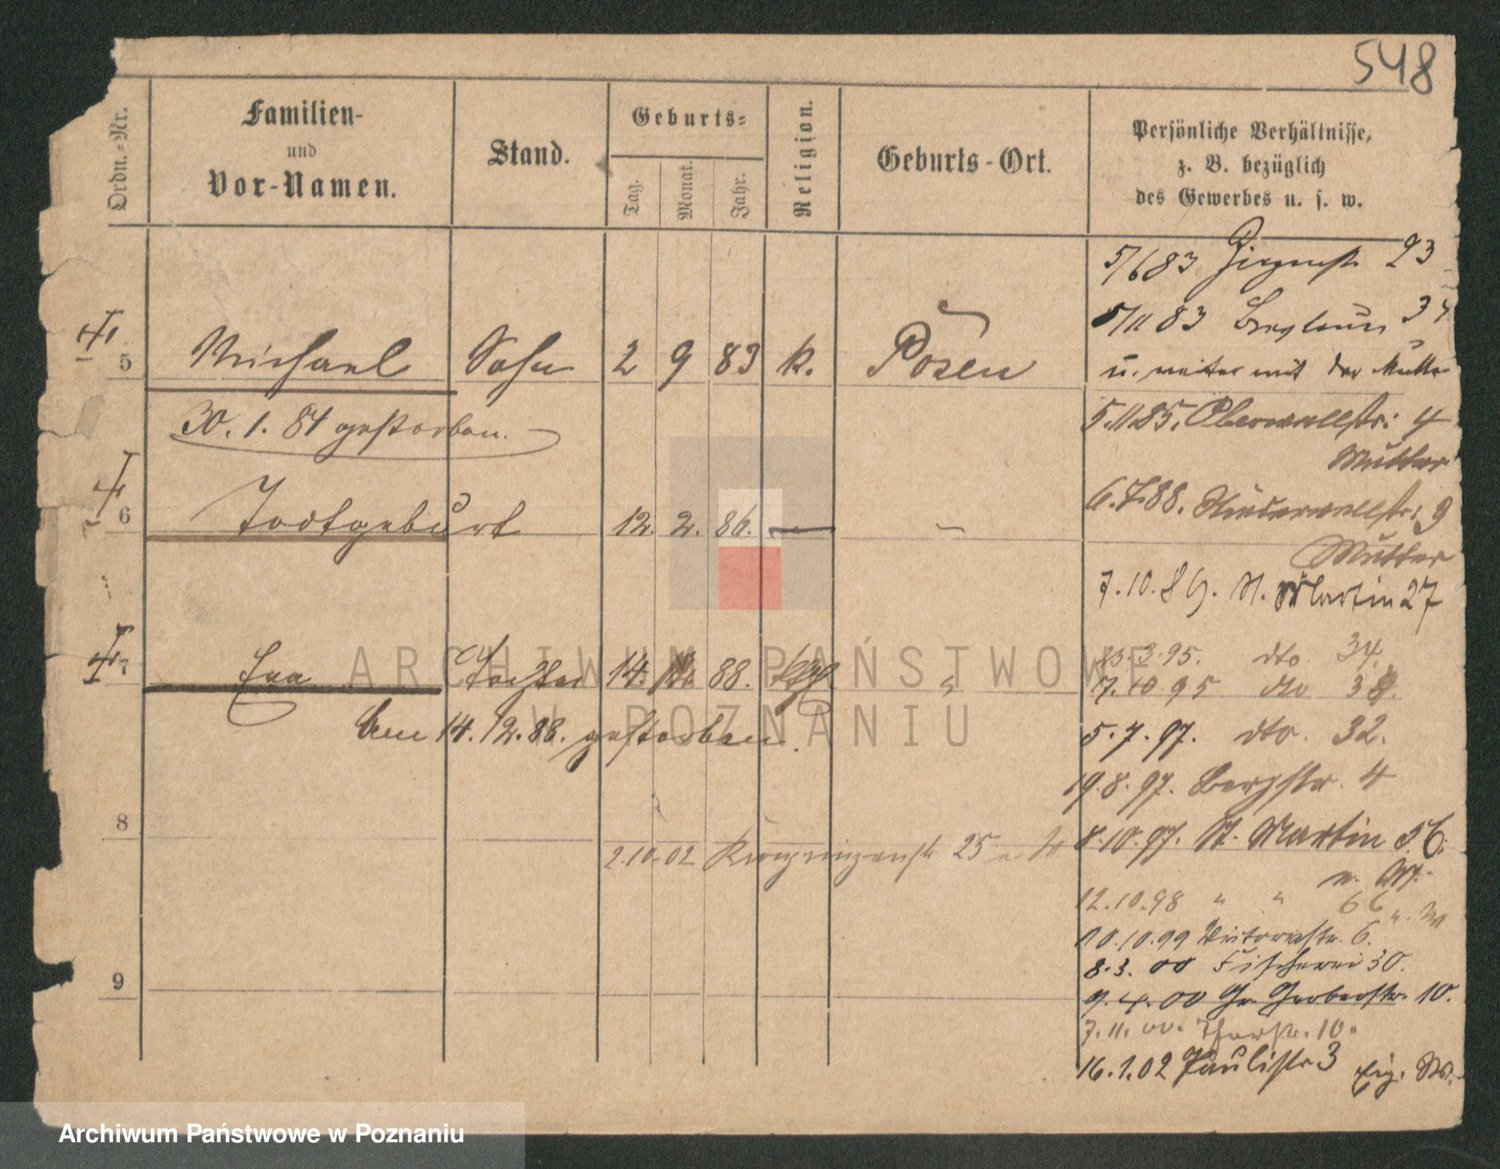 548
Ordn.-Nr.
Familien-
und
Vor-Namen.
Stand.
Geburts-
Tag.
Monat.
Jahr.
Religion.
Geburts-Ort.
Persönliche Verhältnisse,
z. B. bezüglich
des Gewerbes u. s. w.
5/6 83 23
5/11 83 34
u. weiter mit der Mutter
5 Michael Sohn 2 9 83 k. Posen
30. 1. 84 gestorben.
5.11.85. Oberwallstr: 4
Mutter
6 Todtgeburt 12. 2. 86. — —
6.7.88. Niederwallstr: 9
Mutter
7.10.89. St. Martin 27
7 Eva Tochter 14. 12. 88. "
den 14.12.88. gestorben.
3.95. dto 34.
7.10 95 dto
5.7.97. dto. 32.
19.8.97. Bergstr. 4
8
8.10.97. St. Martin 56.
2.10.02 Kronprinzenstr 25
12.10.98 " " 66
10.10.99 Victoriastr. 6.
8.3.00 Fischerei 30.
9
9.4.00 Gr. Gerberstr. 10.
7.11.00. Thorstr. 10.
16.1.02 Paulistr 3
ARCHIWUM PAŃSTWOWE
W POZNANIU
Archiwum Państwowe w Poznaniu